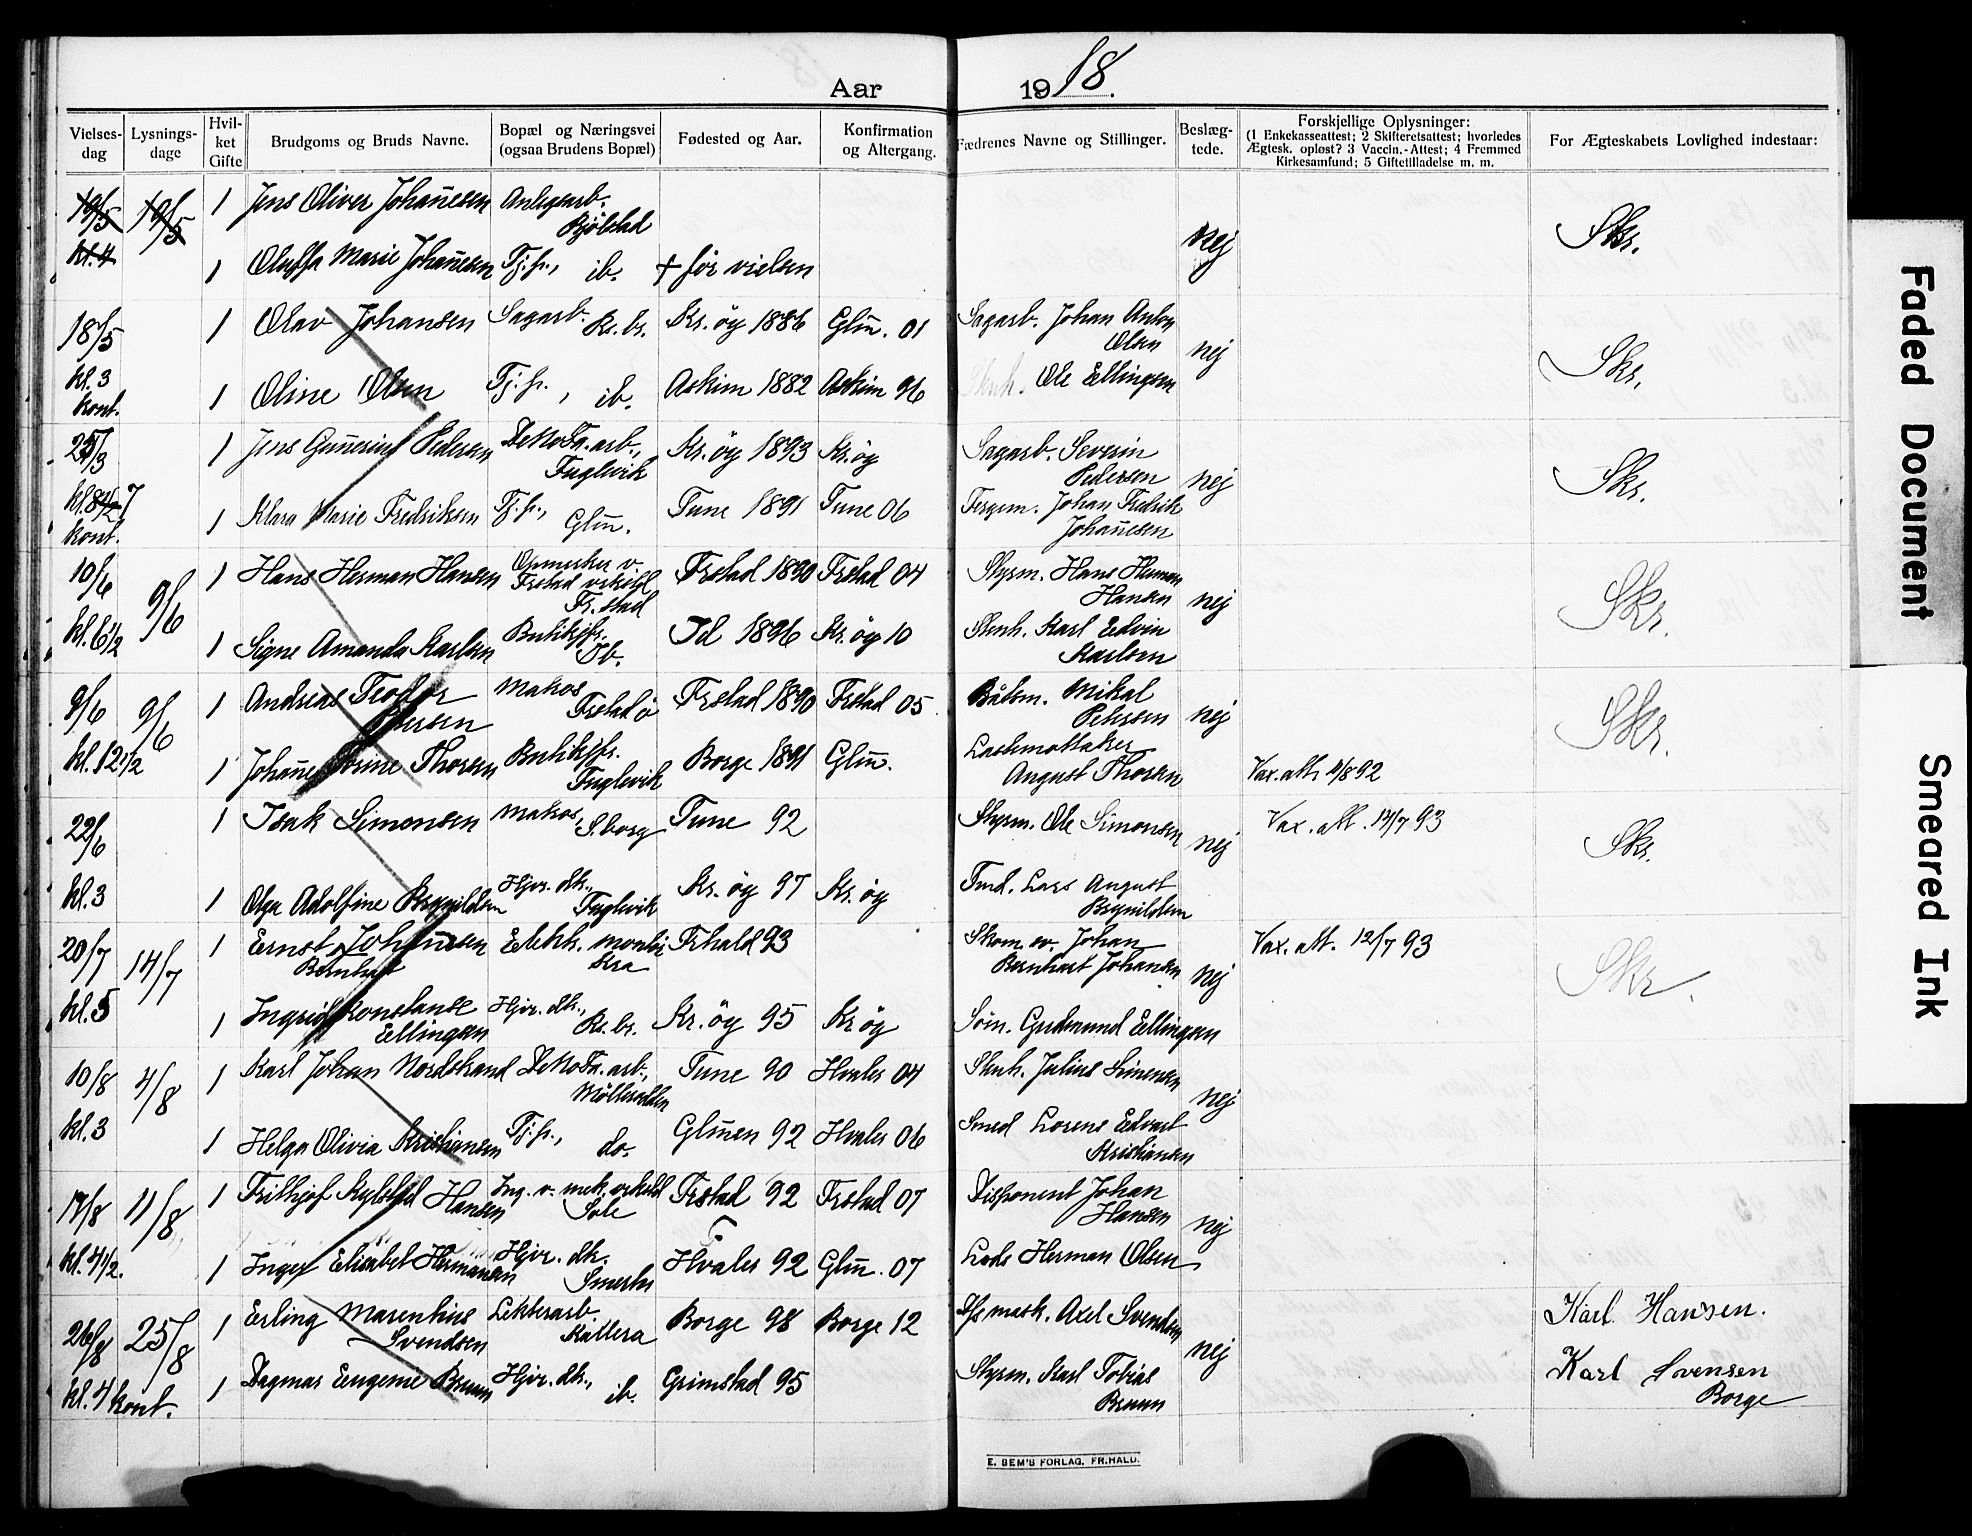 Aar 1918.
Vielses-dag
Lysnings-dage
Hvil-ket Gifte
Brudgoms og Bruds Navne.
Bopæl og Næringsvei (ogsaa Brudens Bopæl)
Fødested og Aar.
Konfirmation og Altergang.
Fædrenes Navne og Stillinger.
Beslæg-tede.
Forskjellige Oplysninger:
(1 Enkekasseattest; 2 Skifteretsattest; hvorledes
Ægtesk. opløst? 3 Vaccin.-Attest; 4 Fremmed
Kirkesamfund; 5 Giftetilladelse m. m.
For Ægteskabets Lovlighed indestaar:
19/5 19/5 1 Jens Oliver Johan̄esen Anlegsarb. Bjölstad nej Skr.
kl. 4 1 Oluffa Marie Johan̄esen Tj.p., ib. † før vielsen
18/5 1 Olav Johansen Sagarb. Kr.br. Kr.øy 1886 Glm̄. 01 Sagarb. Johan Anton Olsen nej Skr.
kl. 3 kont. 1 Oline Olsen Tj.p., ib. Askim 1882 Askim 96 Ole Ellingsen
25/3 1 Jens Gun̄erius Pedersen DeNoFa.arb., Fuglevik Kr.øy 1893 Kr.øy Sagarb. Severin Pedersen nej Skr.
kl. 8 1/2 7 kont. 1 Klara Marie Fredriksen Tj.p., Glm̄. Tune 1891 Tune 06 Fergem. Johan Fredrik Johan̄esen
10/6 9/6 1 Hans Herman Hansen Opmerker v. Frstad vrksted Fr.stad Frstad 1890 Frstad 04 Styrm. Hans Herman Hansen nej Skr.
kl. 6 1/2 1 Signe Amanda Karlsen Butikjfr. Ib. Id 1896 Kr.øy 10 Stenh. Karl Edvin Karlsen
9/6 9/6 1 Andreas Teodor Petersen Matros Frstad ö Frstad 1890 Frstad 05 Båtsm. Mikal Petersen nej Skr.
kl. 12 1/2 1 Johan̄e Thorsen Butikjfr. Fuglevik Borge 1891 Glm̄. Lastemottaker August Thorsen Vax.att. 4/8 92
22/6 1 Isak Simonsen Matros, S.borg Tune 92 Styrm. Ole Simonsen nej Vax. att. 13/7 93 Skr.
kl. 3 1 Olga Adolfine Brynildsen Hjv. dtr., Fuglevik Kr. øy 97 Kr. øy Tmd. Lars August Brynildsen
20/7 14/7 1 Ernst Bernhart Johansen Elektr. montør Kra Frhald 93 Skom.sv. Johan Bernhart Johansen nej Vax. att. 12/7 93 Skr.
kl. 5 1 Ingrid Konstanse Ellingsen Hjv. dtr., Kr.br. Kr. øy 95 Kr øy Söm. Gudmund Ellingsen
10/8 4/8 1 Karl Johan Nordstrand DeNoFa.arb., Tune 90 Hvaler 04 Stenh. Julius Simensen nej
kl. 3 1 Helga Olivia Kristiansen Tj.p., do. Glm̄en 92 Hvaler 06 Smed Lorens Edvart Kristiansen
17/8 11/8 1 Frithjof Kylstad Hansen Ing. v. mek. vrksted Frstad 92 Frstad 07 Disponent Johan Hansen nej
kl. 4 1/2. 1 Inger Elisabet Hermansen Hjv. dtr. Hvaler 92 Glm̄. 07 Lods Herman Olsen
26/8 25/8 1 Erling Marentius Svendsen Lekterarb. Kallera Borge 98 Borge 12 mask. Axel Svendsen nej Karl Hansen.
kl. 4 kont. 1 Dagmar Eugenie Bruun Hjv. dtr., ib. Grimstad 95 Styrm. Karl Tobias Bruun Karl Svensen Borge
E. SEM'S FORLAG. FR.HALD.
Faded Document
Smeared Ink